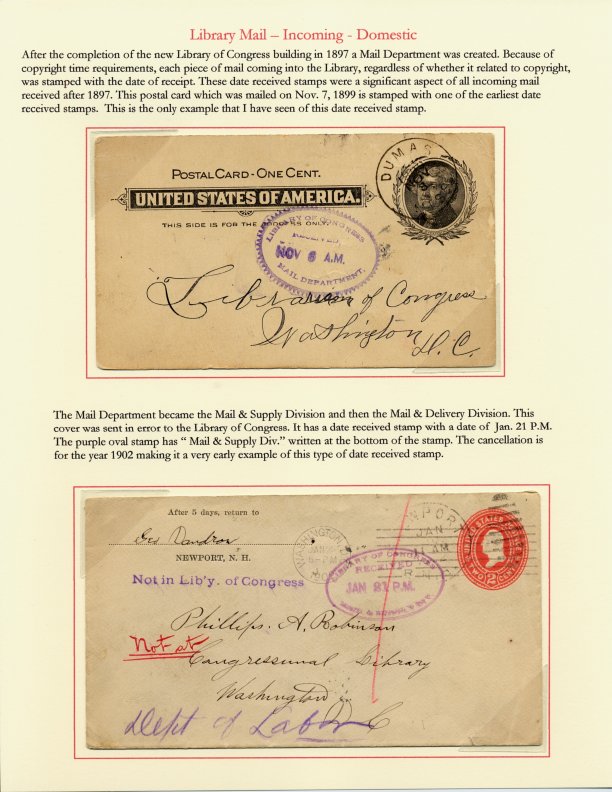 Library Mail – Incoming - Domestic
After the completion of the new Library of Congress building in 1897 a Mail Department was created. Because of
copyright time requirements, each piece of mail coming into the Library, regardless of whether it related to copyright,
was stamped with the date of receipt. These date received stamps were a significant aspect of all incoming mail
received after 1897. This postal card which was mailed on Nov. 7, 1899 is stamped with one of the earliest date
received stamps. This is the only example that I have seen of this date received stamp.
DUMAS
NOV
POSTAL CARD - ONE CENT.
UNITED STATES OF AMERICA.
THIS SIDE IS FOR THE ADDRESS ONLY.
LIBRARY OF CONGRESS
RECEIVED
NOV 8 A.M.
MAIL DEPARTMENT.
Librarian of Congress
Washington
D.C.
The Mail Department became the Mail & Supply Division and then the Mail & Delivery Division. This
cover was sent in error to the Library of Congress. It has a date received stamp with a date of Jan. 21 P.M.
The purple oval stamp has “ Mail & Supply Div.” written at the bottom of the stamp. The cancellation is
for the year 1902 making it a very early example of this type of date received stamp.
After 5 days, return to
Geo
NEWPORT, N. H.
WASHINGTON
JAN
NEWPORT
JAN
AM
UNITED STATES
TWO 2 CENTS
LIBRARY OF CONGRESS
RECEIVED
JAN 21 P.M.
Not in Lib'y. of Congress
Phillips. A. Robinson
Not at
Congressional Library
Washington
D C
Dept of Labor